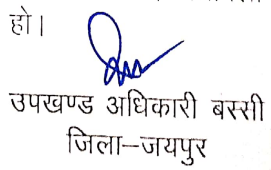 हो।
उपखण्ड अधिकारी बस्सी
जिला–जयपुर